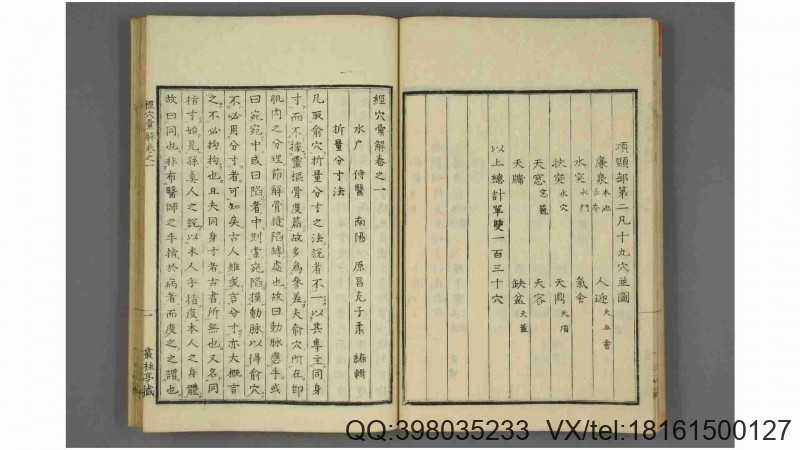 項頸部第二凡十九穴並圖
廉泉 本池 舌本 人迎 天五會
水突 水門 氣舍
扶突 水穴 天鼎 天頂
天窓 窓籠 天容
天牖 缺盆 天蓋
以上總計單雙一百三十穴
經穴彙解卷之一
水戸 侍醫 南陽 原昌克子柔 編輯
折量分寸法
凡取俞穴折量分寸之法説者不一以其專主同身
寸而不據靈樞骨度篇故多爲參差夫俞穴所在卽
肌肉之分理節解骨縫陷罅處也故曰動脉應手或
曰宛宛中或曰陷者中則索宛陷摸動脉以得俞穴
不必用分寸者可知矣古人雖或言分寸亦大概言
之不必拘拘也且夫同身寸者古書所無也又名同
指寸始見孫眞人之説以本人手指度本人之身體
故曰同也非布醫師之手指於病者而度之之謂也
經穴彙解卷之一
一
叢桂亭藏
QQ:398035233 VX/tel:18161500127